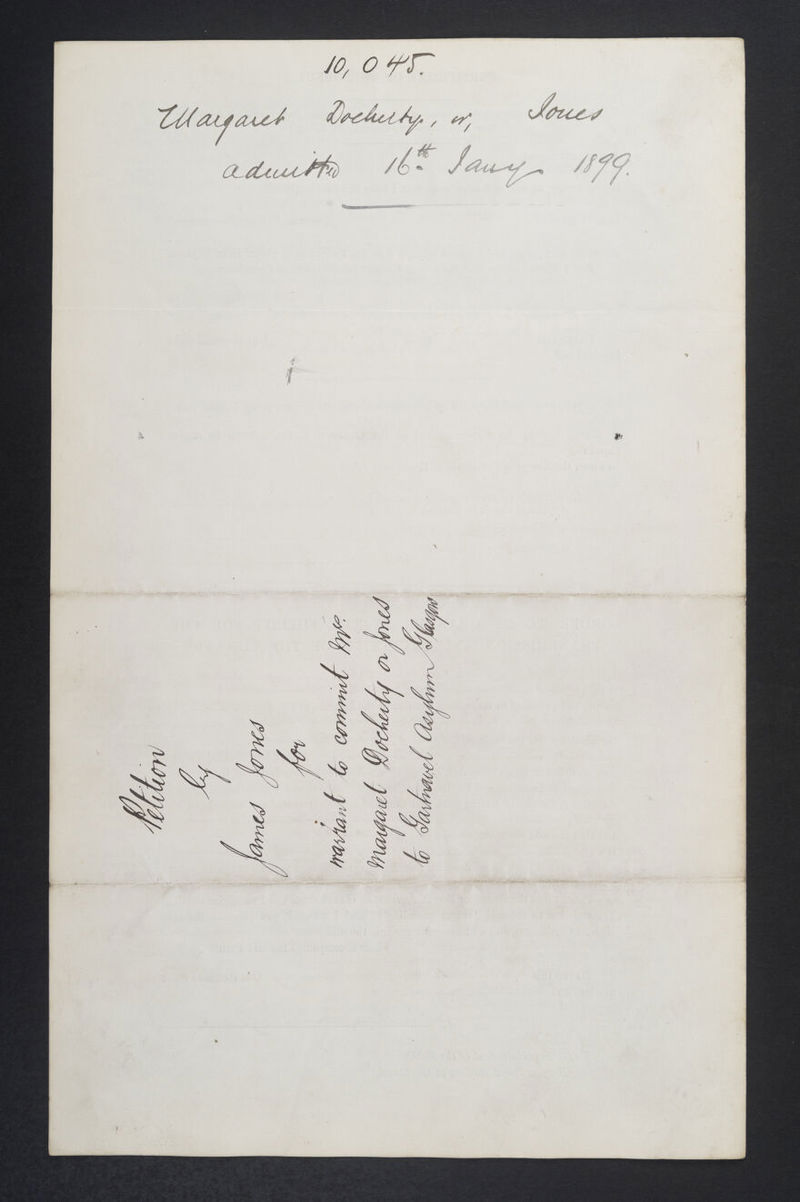 10,045.
Margaret Docherty, or, Jones
admitted 16th Jany. 1899.
Petition
by
James Jones
for
warrant to commit Mrs.
Margaret Docherty or Jones
to Gartnavel Asylum Glasgow